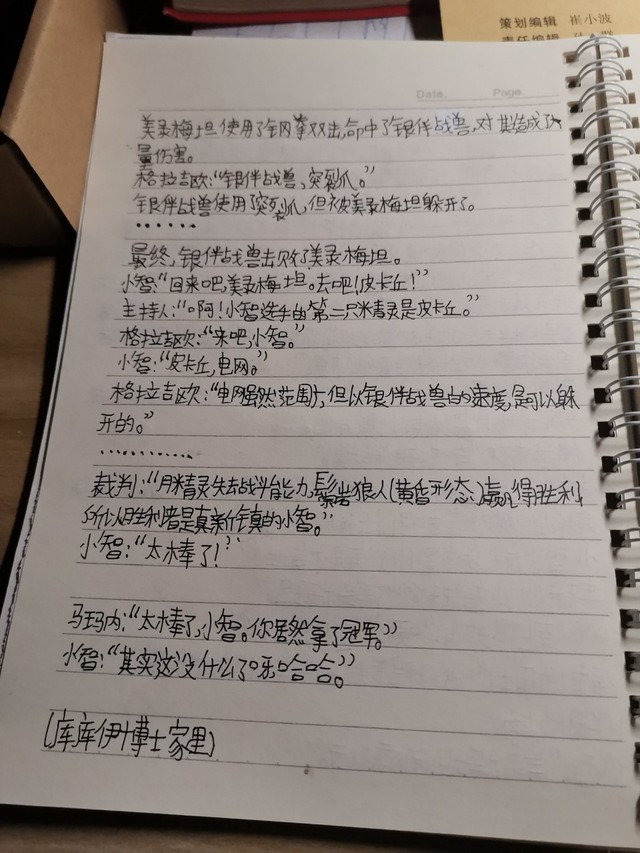 策划编辑 崔小波
责任编辑
Date. Page
美录梅坦使用了钢拳双击,命中了银伴战兽,对其造成了大
量伤害。
格拉吉欧:“银伴战兽,突裂爪。”
银伴战兽使用了突裂爪,但被美录梅坦躲开了。
······
最终,银伴战兽击败了美录梅坦。
小智:“回来吧,美录梅坦。去吧!皮卡丘!”
主持人:“啊!小智选手由第二只米精灵是皮卡丘。”
格拉吉欧:“来吧,小智。”
小智:“皮卡丘,电网。”
格拉吉欧:“电网虽然范围大,但以银伴战兽的速度,是可以躲
开的。”
············
裁判:“月米精灵失去战斗能力,鬃岩狼人(黄昏形态)赢得胜利
所以胜利者是真新镇的小智。”
小智:“太棒了!”
马玛内:“太棒了,小智。你居然拿了冠军。”
小智:“其实这没什么了呀,哈哈。”
(库库伊博士家里)